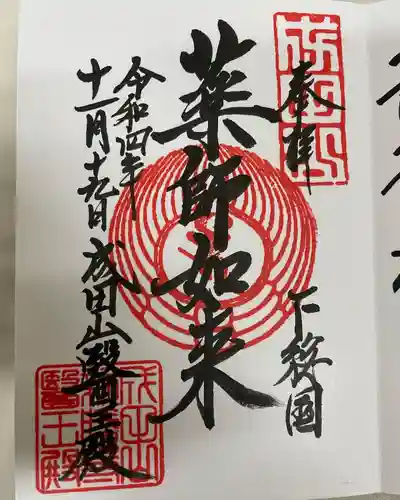 奉拝
下総國
薬師如来
令和四年
十一月十九日
成田山醫王殿
成田山